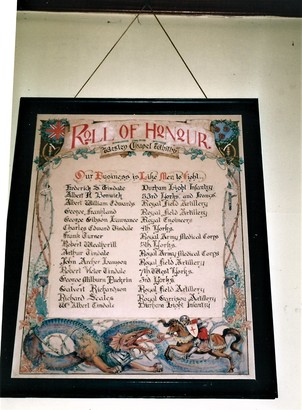 ROLL OF HONOUR
Wesley Chapel Whitby
Our Business is Like Men to Fight.
Frederick S. Tindale Durham Light Infantry
Albert H. 
Albert William Edwards Royal Field Artillery
George Frankland Royal Field Artillery
George Gibson Lawrence Royal Engineers
Charles Edmund Tindale 4th Yorks.
Frank Turner Royal Army Medical Corps
Robert Weatherill 5th Yorks.
Arthur Tindale Royal Army Medical Corps
John Archer Lawson Royal Field Artillery
Robert Peter Tindale 7th West Yorks.
George Milburn 3rd Yorks.
Richardson Royal Field Artillery
Richard Scales Royal Garrison Artillery
Wm Albert Tindale Durham Light Infantry